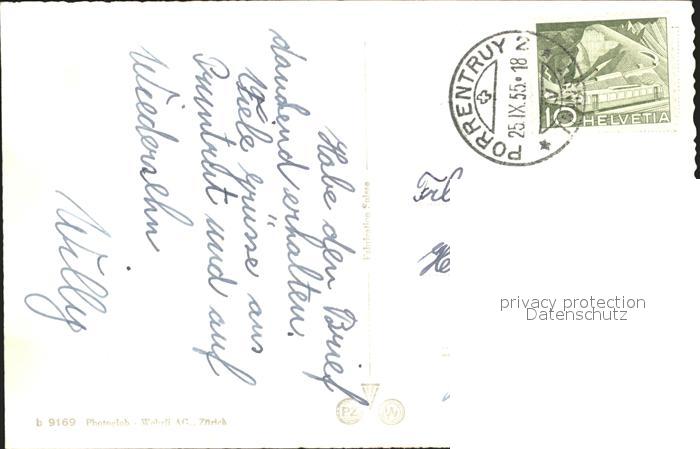 Habe den Brief
dankend erhalten.
Viele Grüsse aus
Pruntrut und auf
Wiedersehn
Willy
Fabrication Suisse
PZ W
b 9169 Photoglob - Wehrli AG., Zürich
PORRENTRUY 2
25.IX.55.18
10 HELVETIA
Frl
He
privacy protection
Datenschutz